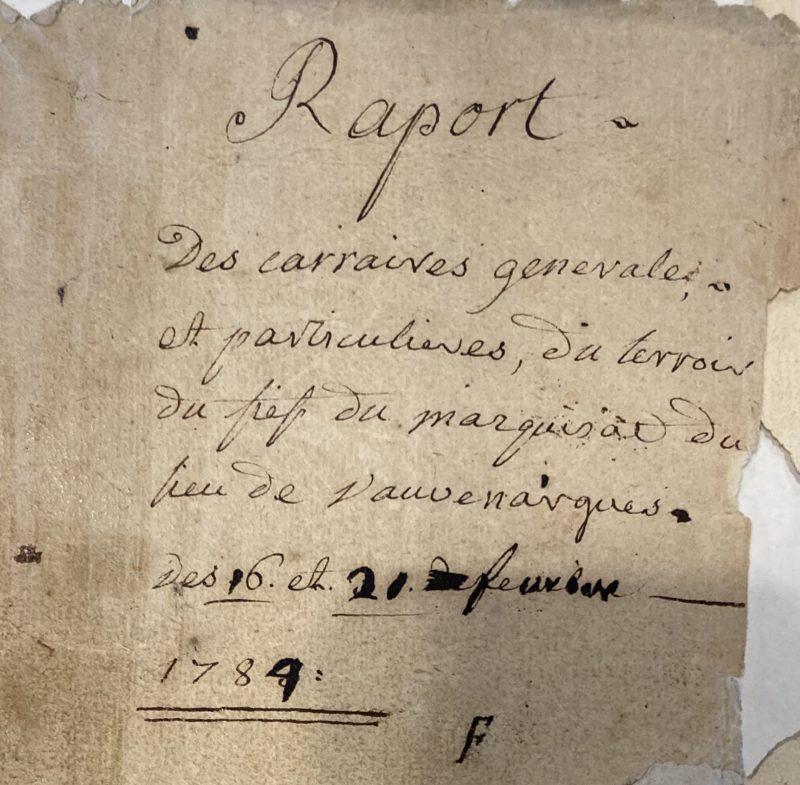 Raport
Des carraires generales,
et particulieres, du terroir
du fief du marquisat du
lieu de vauvenargues.
des 16. et. 21. feurier
1784:
F